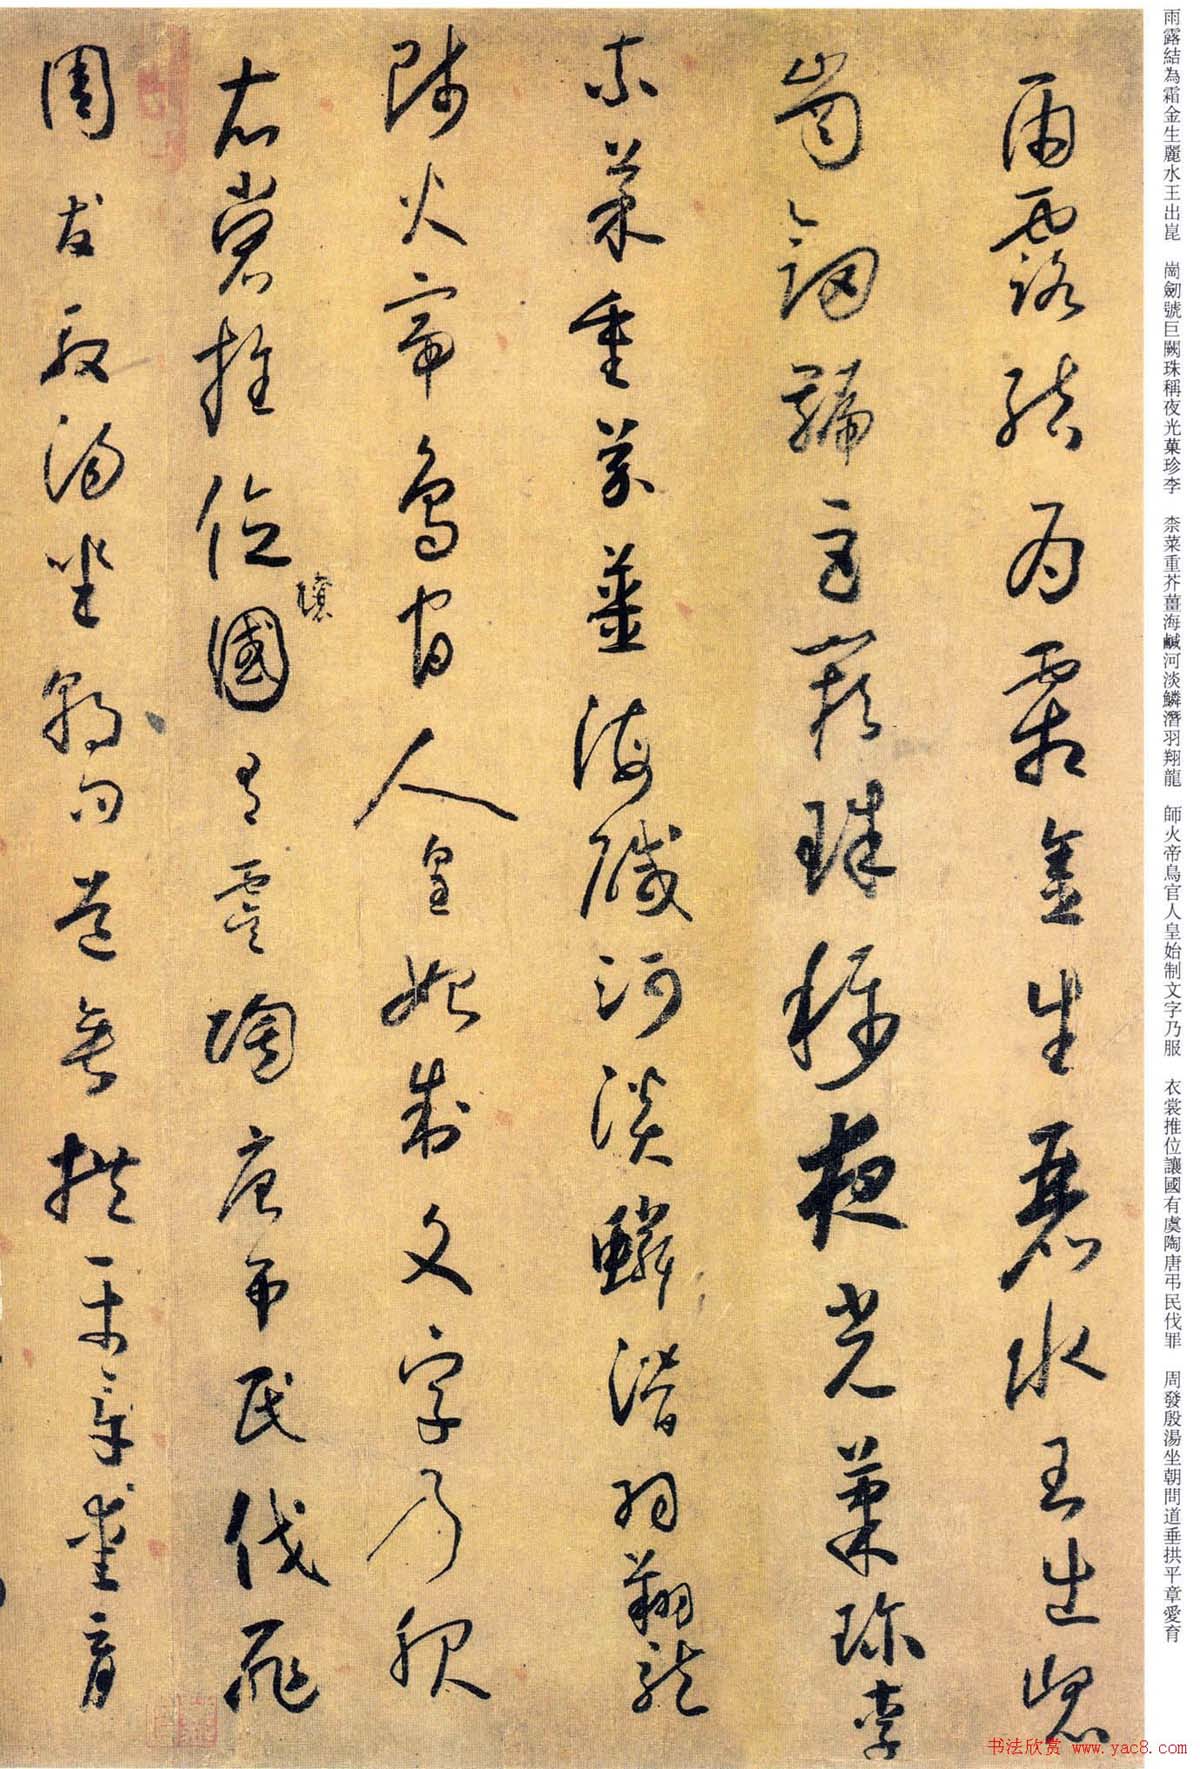 雨露結為霜金生麗水王出崑　崗劒號巨闕珠稱夜光菓珍李　柰菜重芥薑海鹹河淡鱗潛羽翔龍　師火帝鳥官人皇始制文字乃服　衣裳推位讓國有虞陶唐弔民伐罪　周發殷湯坐朝問道垂拱平章愛育
雨露結為霜金生麗水玉出崑
崗劒號巨闕珠稱夜光菓珍李
柰菜重芥薑海鹹河淡鱗潛羽翔龍
師火帝鳥官人皇始制文字乃服
衣裳推位讓國有虞陶唐弔民伐罪
周發殷湯坐朝問道垂拱平章愛育
书法欣赏 www.yac8.com